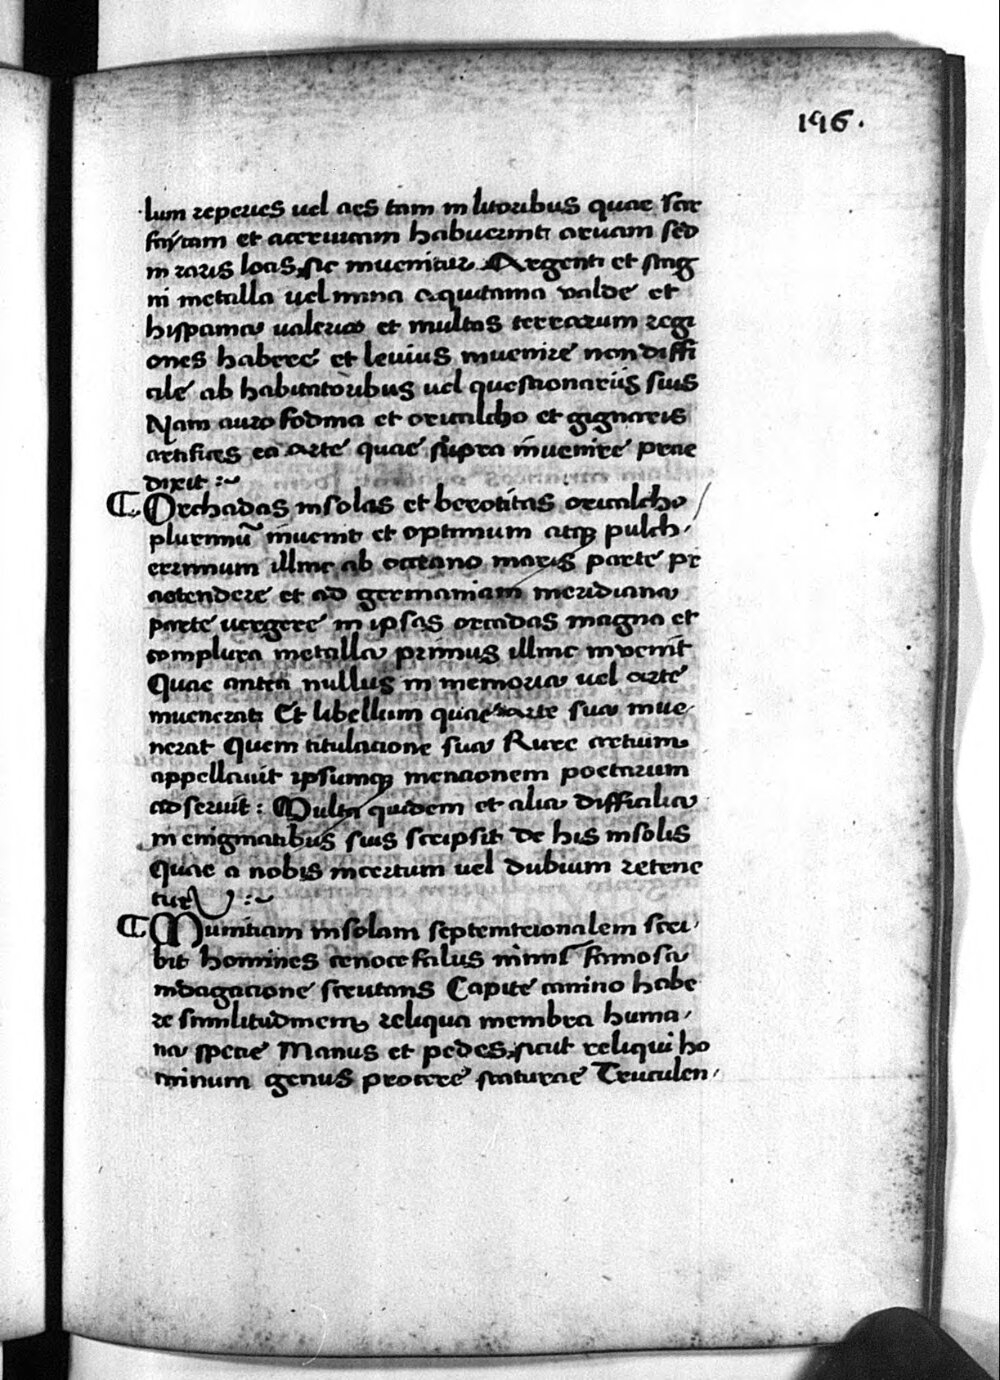 196.
lum reperies uel aes tam in litoribus quae scar
faÿtam et aceruicam habuerint aruam sed
in raris locis sic inuenitur Argenti et stag
ni metalla uel mina aequitania valde et
hispania ualerica et multas terrarum regi
ones habere et leuius inuenire non diffi
cile ab habitatoribus uel questionariis suis
Nam auro fodina et oricalcho et gignaris
artifices ea arte quae supra inuenire prae
dixit :~
Orchadas insolas et berotitas oricalcho
plurimū inuenit et optimum atqꝫ pulch
errimum illinc ab occeano maris parte pr
aetendere et ad germaniam meridiana
parte uergere in ipsas orcadas magna et
complura metalla primus illinc invenit
Quae antea nullus in memoria uel arte
inuenerat Et libellum quae arte sua inue
nerat Quem titulacione sua Rure cretium
appellauit ipsumqꝫ mencionem poetarum
adseruit : Multa quidem et alia difficilia
in enigmatibus suis scripsit de his insolis
Quae a nobis incertum uel dubium retene
tur :~
Munitiam insolam septemtrionalem scri
bit homines cenocefalus nimis famosa
indagacione scrutans Capite canino habe
re similitudinem reliqua membra huma
na specie Manus et pedes sicut reliqui ho
minum genus procere staturae Truculen